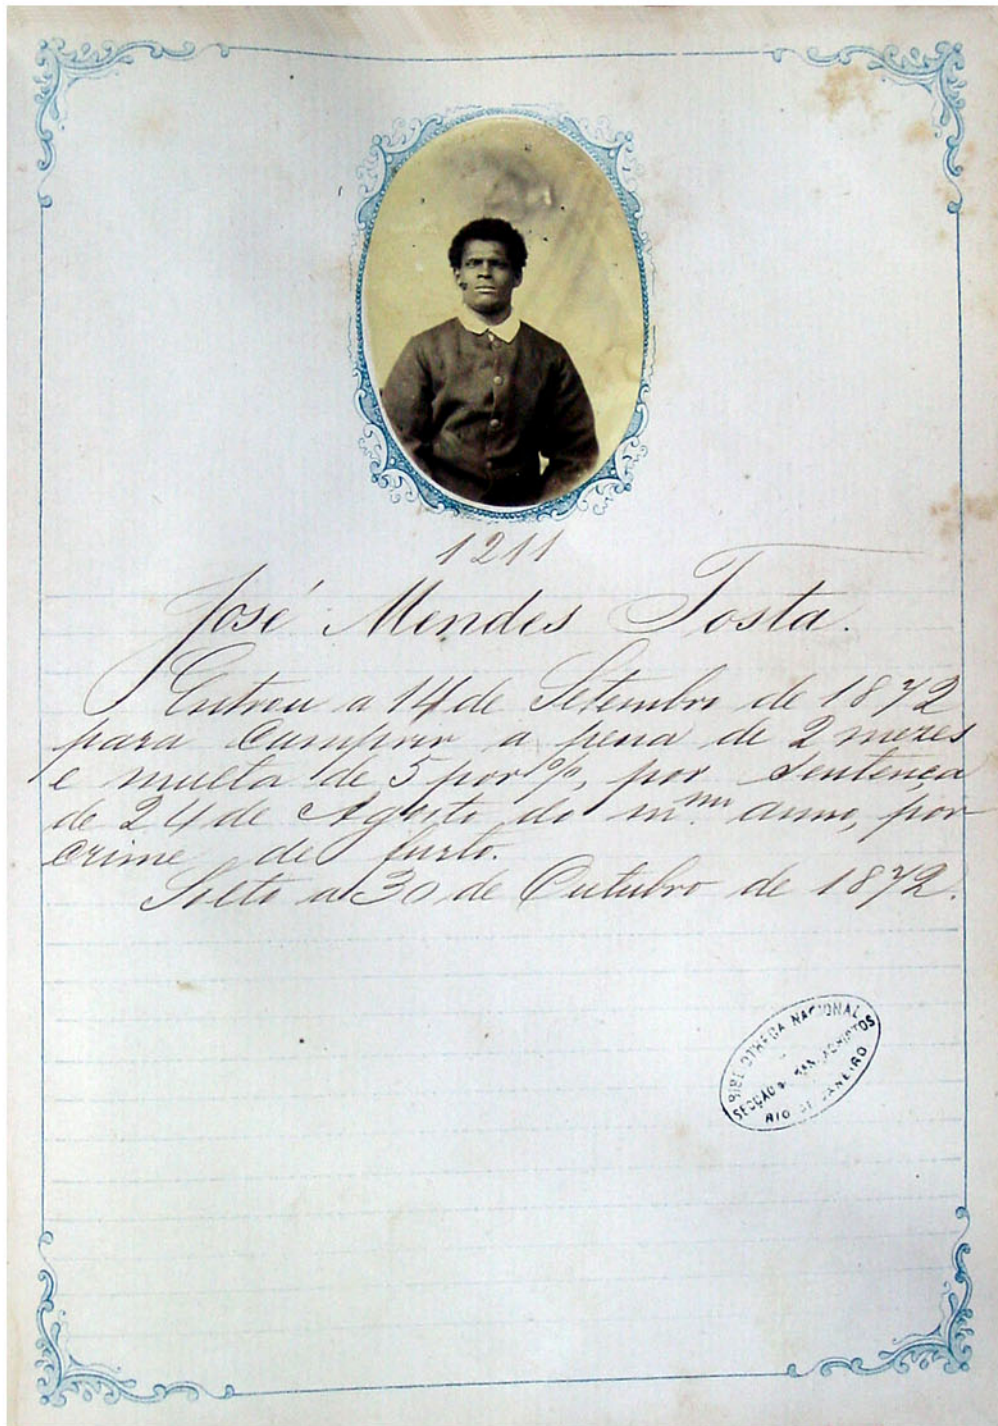 1211
José Mendes Tosta.
Entrou a 14 de Setembro de 1872
para cumprir a pena de 2 mezes
e multa de 5 por %, por sentença
de 24 de Agosto do m.mo anno, por
crime de furto.
Solto a 30 de Outubro de 1872.
BIBLIOTHECA NACIONAL
SECÇÃO DE MANUSCRIPTOS
RIO DE JANEIRO